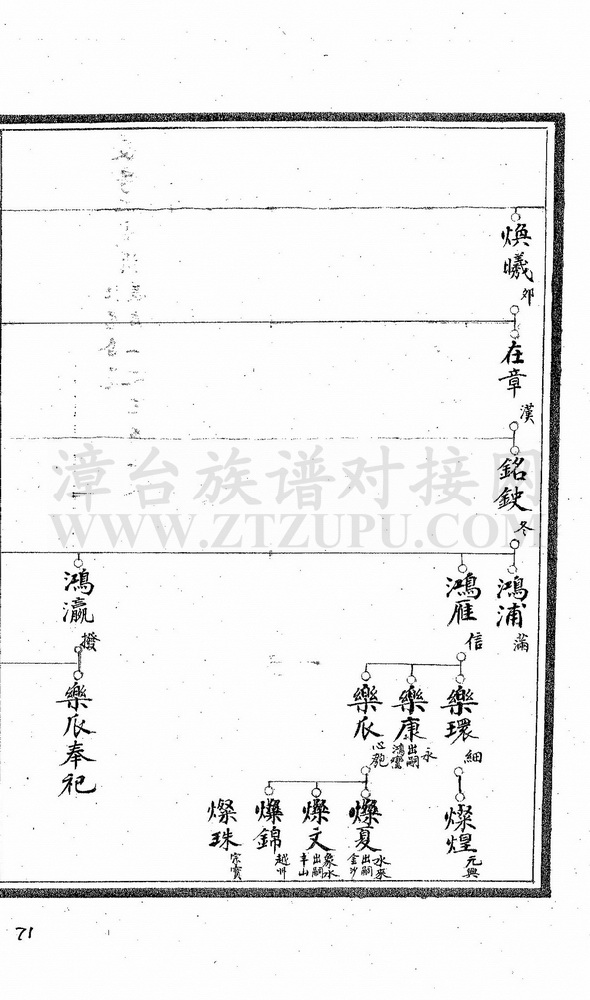 煥曦
邜
在章
漢
銘鉂
冬
鴻浦
滿
鴻雁
信
鴻瀛
撥
樂環
細
樂康
永
出嗣
鴻鸞
樂瓜
心匏
樂瓜奉祀
燦煌
元興
燦夏
水來
出嗣
金沙
燦文
象水
出嗣
丰山
燦錦
越卅
燦珠
宗寶
漳台族谱对接网
WWW.ZTZUPU.COM
71